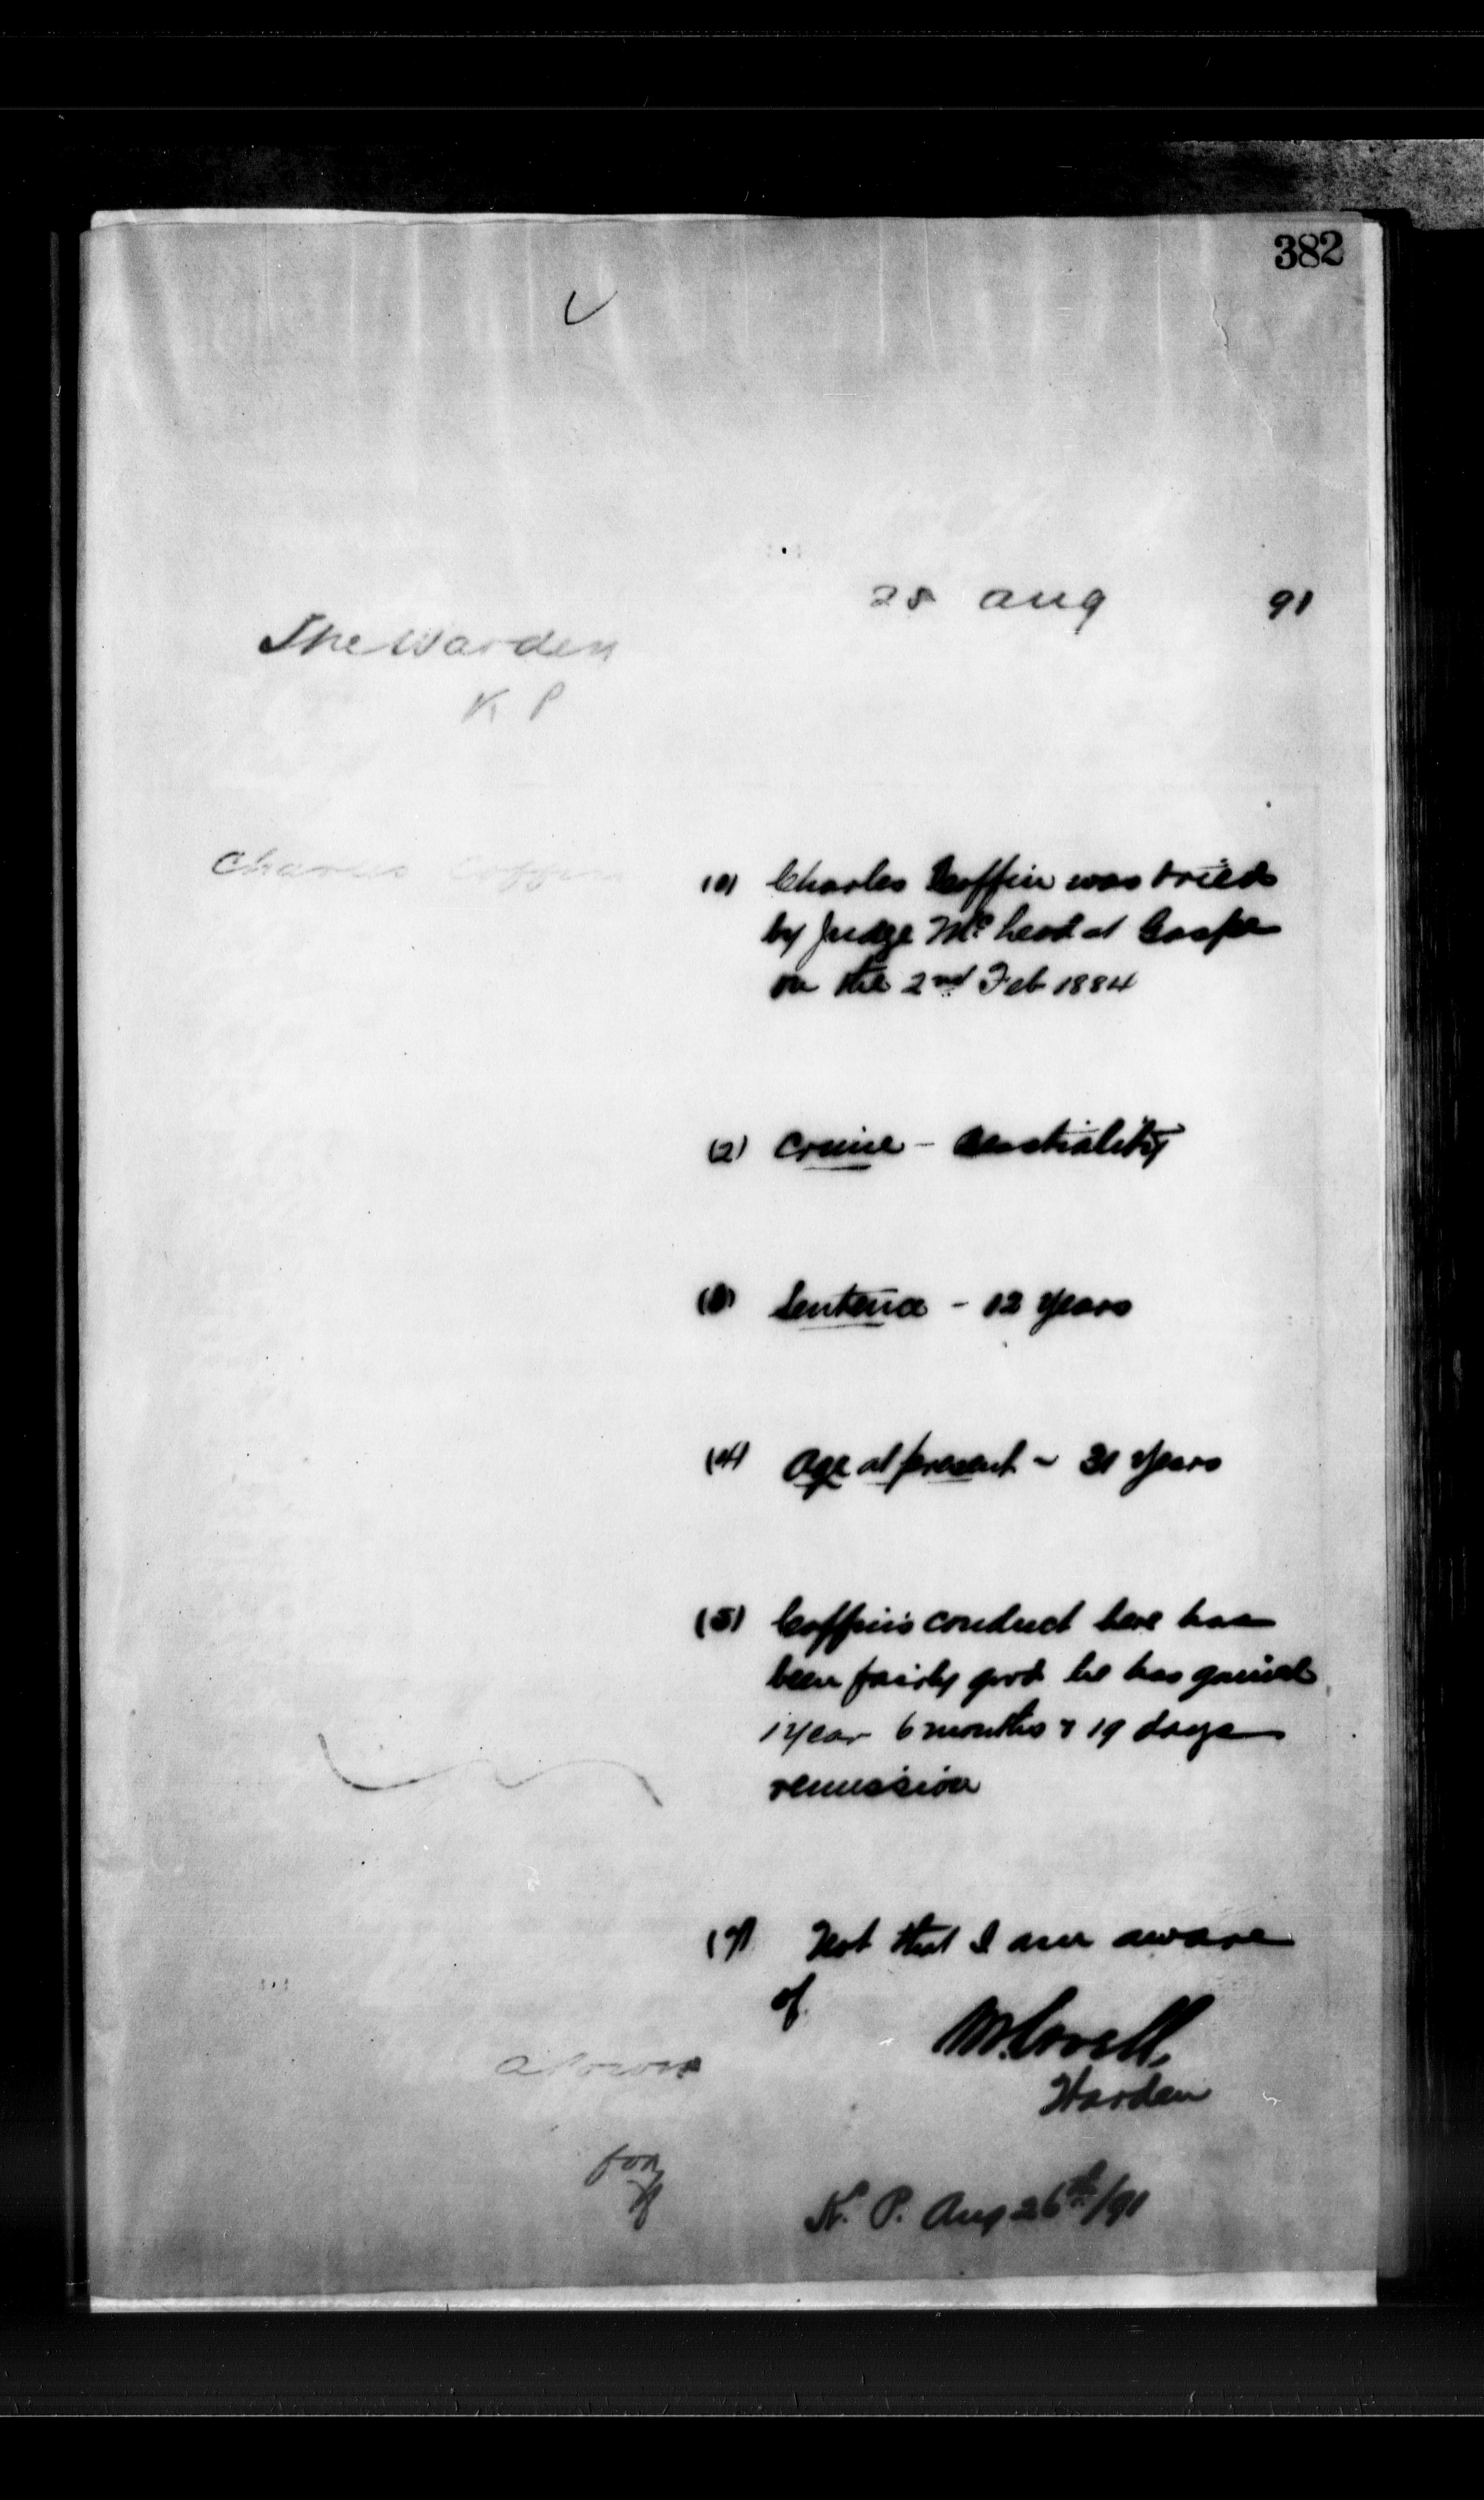 382
25 Aug 91
The Warden
K P
Charles Coffin
(1) Charles Coffin was tried
by Judge Mc Leod at Gaspe
on the 2nd Feb 1884
(2) Crime - Beastiality
(3) Sentence - 12 Years
(4) Age at present - 31 Years
(5) Coffin's conduct here has
been fairly good he has gained
1 Year 6 months & 19 days
remission
(7) Not that I am aware
of
M. Lavell,
Warden
K. P. Aug 26th/91